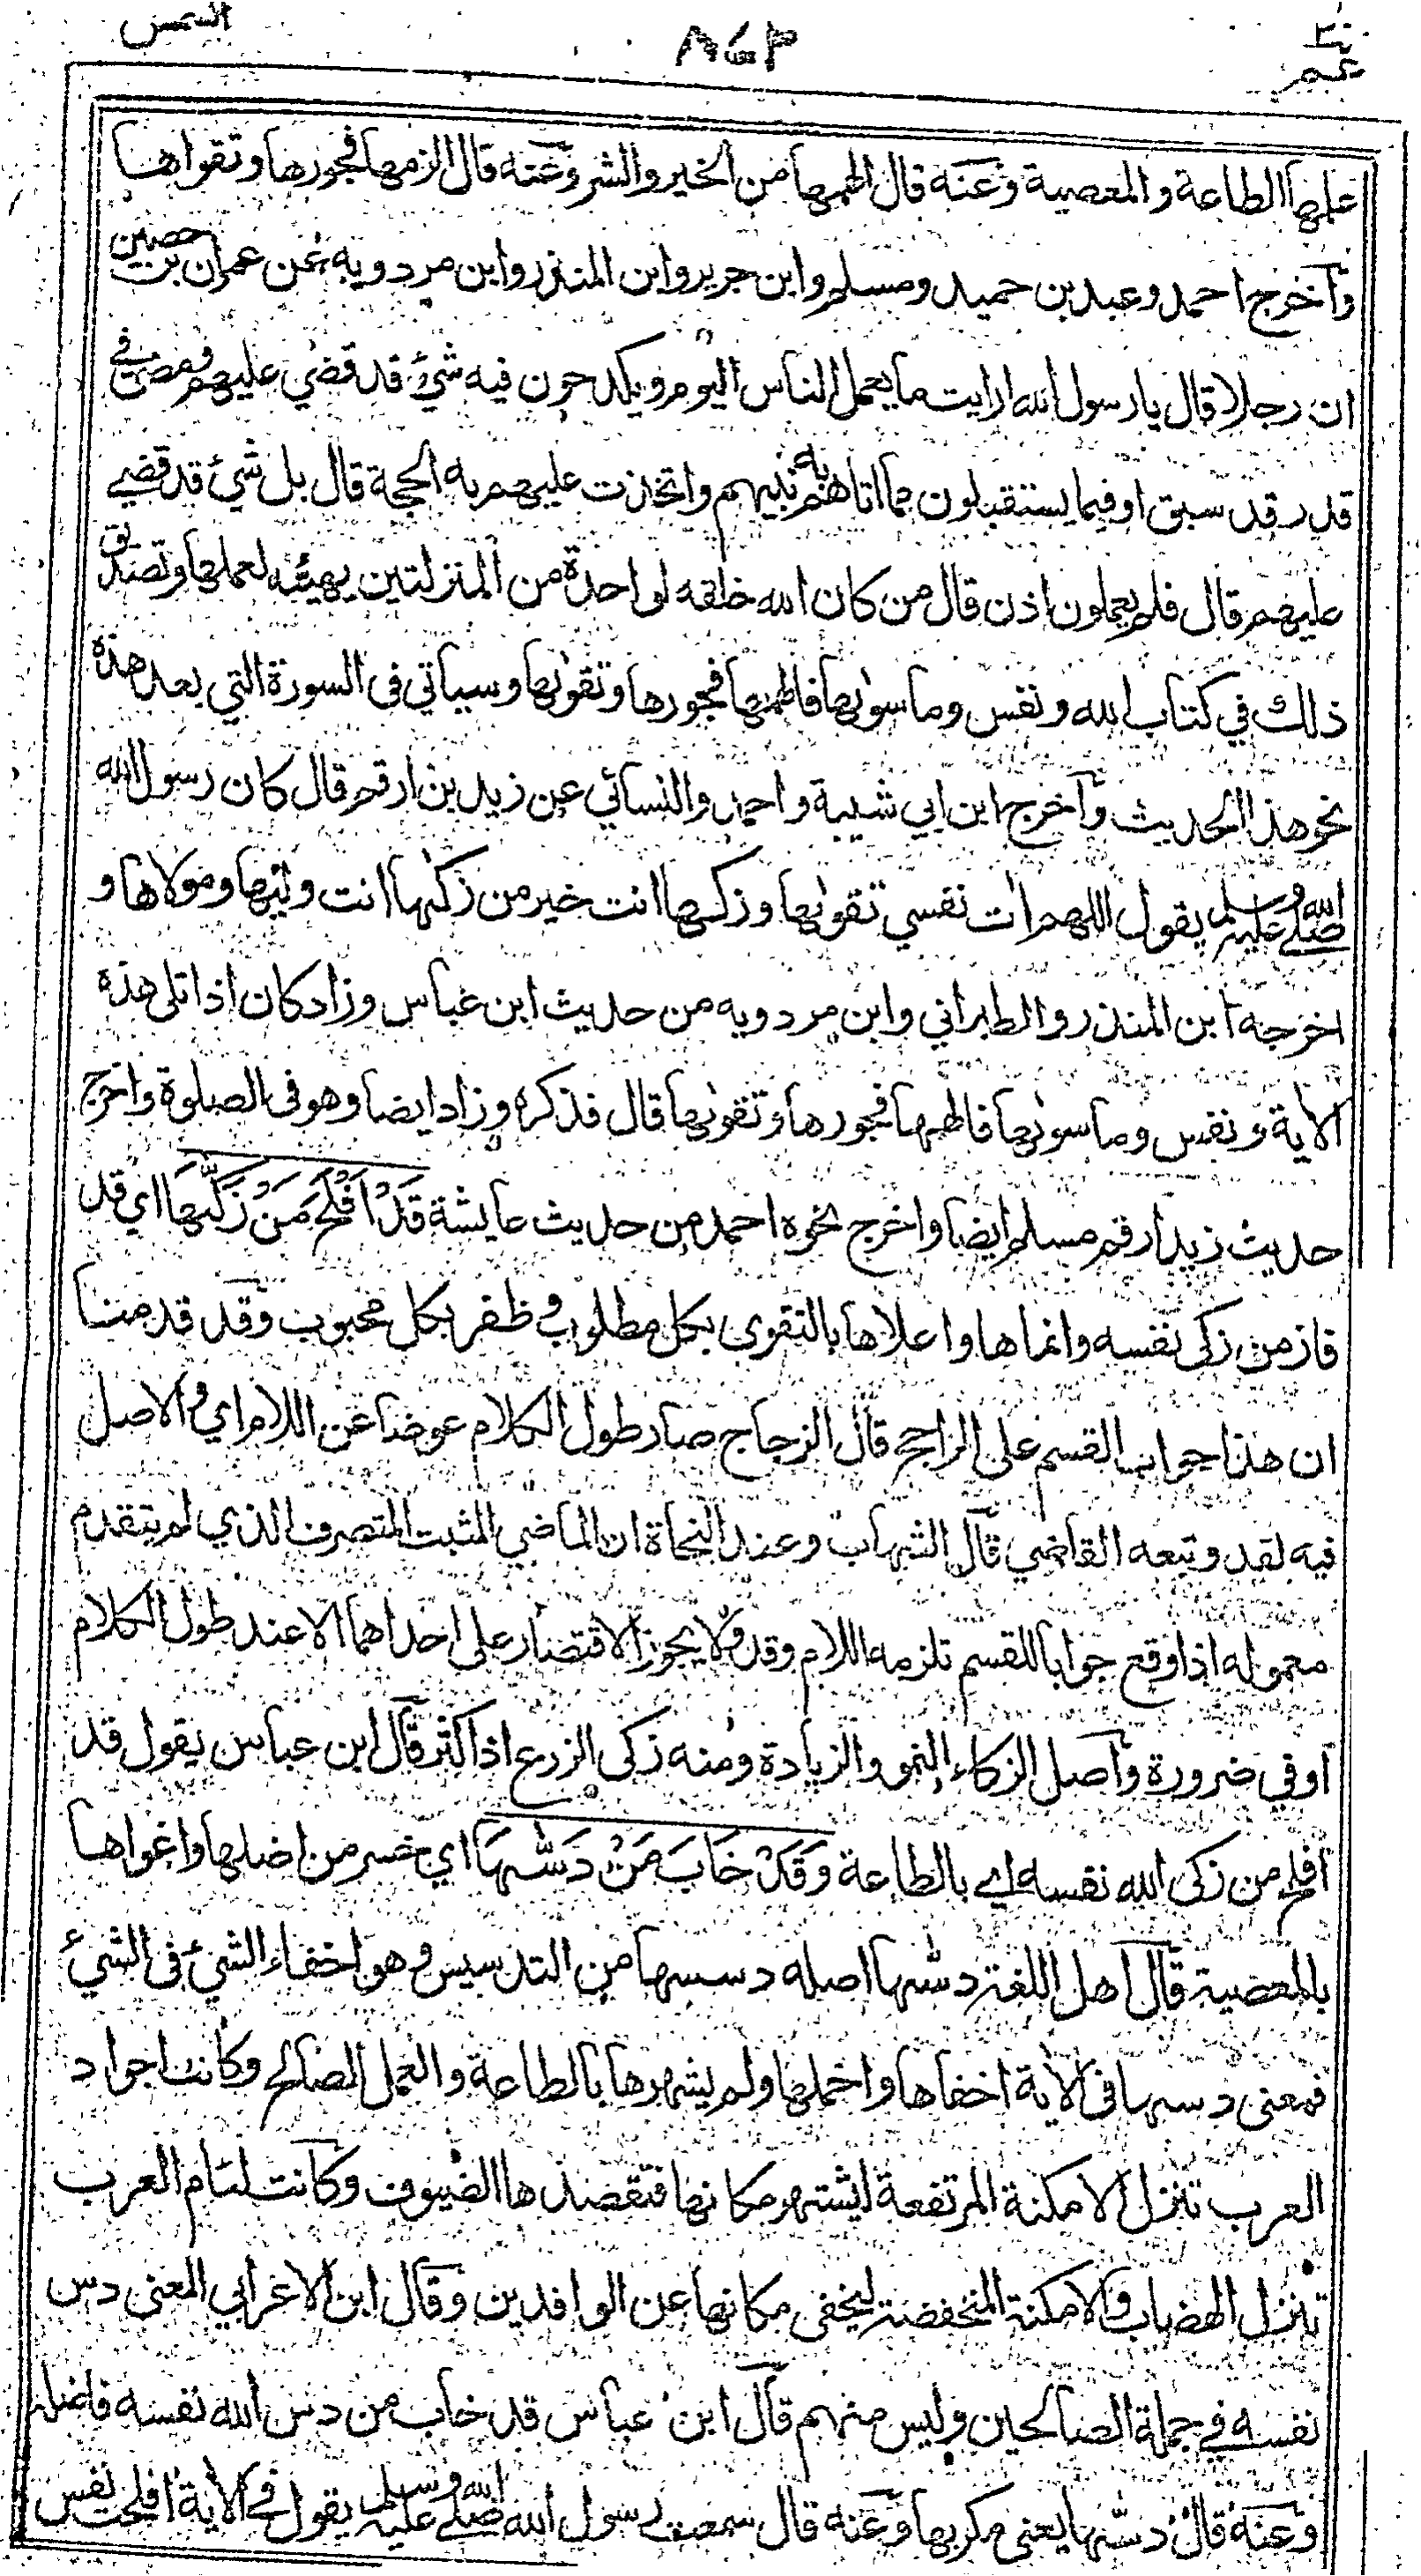 عم
٤٧٣
الشمس
علمها الطاعة والمعصية وعنه قال الهمها من الخير والشر وعنه قال الزمها فجورها وتقواها
وأخرج احمد وعبد بن حميد ومسلم وابن جرير وابن المنذر وابن مردويه عن عمران بن حصين
ان رجلا قال يا رسول الله ارايت ما يعمل الناس اليوم ويكدحون فيه شيء قد قضي عليهم ومضى في
قدر قد سبق او فيما يستقبلون مما اتاهم به نبيهم واتخذت عليهم به الحجة قال بل شيء قد قضي
عليهم قال فلم يعملون اذن قال من كان الله خلقه لواحدة من المنزلتين يهيئه لعملها وتصديق
ذلك في كتاب الله ونفس وما سوىها فالهمها فجورها وتقوىها وسياتي في السورة التي بعد هذه
نحو هذا الحديث وأخرج ابن ابي شيبة واحمد والنسائي عن زيد بن ارقم قال كان رسول الله
صلى الله عليه وسلم يقول اللهم ات نفسي تقوىها وزكها انت خير من زكىها انت وليها ومولاها و
اخرجه ابن المنذر والطبراني وابن مردويه من حديث ابن عباس وزاد كان اذا تلى هذه
الاية ونفس وما سوىها فالهمها فجورها وتقوىها قال فذكره وزاد ايضا وهو في الصلوة واخرج
حديث زيد ارقم مسلم ايضا واخرج نحوه احمد من حديث عايشة قَدْ اَفْلَحَ مَنْ زَكّٰىهَا اي قد
فاز من زكى نفسه وانماها واعلاها بالتقوى بكل مطلوب وظفر بكل محبوب وقد قدمنا
ان هذا جواب القسم على الراجح قال الزجاج صار طول الكلام عوضا عن اللام اي والاصل
فيه لقد وتبعه القاضي قال الشهاب وعند النحاة ان الماضي المثبت المتصرف الذي لم يتقدم
معموله اذا وقع جوابا للقسم تلزمه اللام وقد ولا يجوز الاقتصار على احداهما الا عند طول الكلام
أو في ضرورة وأصل الزكاء النمو والزيادة ومنه زكى الزرع اذا كثر قال ابن عباس يقول قد
افلح من زكى الله نفسه اي بالطاعة وَقَدْ خَابَ مَنْ دَسّٰىهَا اي خسر من اضلها واغواها
بالمعصية قال اهل اللغة دسىها اصله دسسها من التدسيس وهو اخفاء الشيء في الشيء
فمعنى دسىها في الاية اخفاها واخملها ولم يشهرها بالطاعة والعمل الصالح وكانت اجواد
العرب تنزل الامكنة المرتفعة ليشتهر مكانها فتقصدها الضيوف وكانت لئام العرب
تنزل الهضاب والامكنة المنخفضة ليخفى مكانها عن الوافدين وقال ابن الاعرابي المعنى دس
نفسه في جملة الصالحين وليس منهم قال ابن عباس قد خاب من دس الله نفسه فاضله
وعنه قال دسىها يعني مكر بها وعنه قال سمعت رسول الله صلى الله عليه وسلم يقول في الاية افلحت نفس